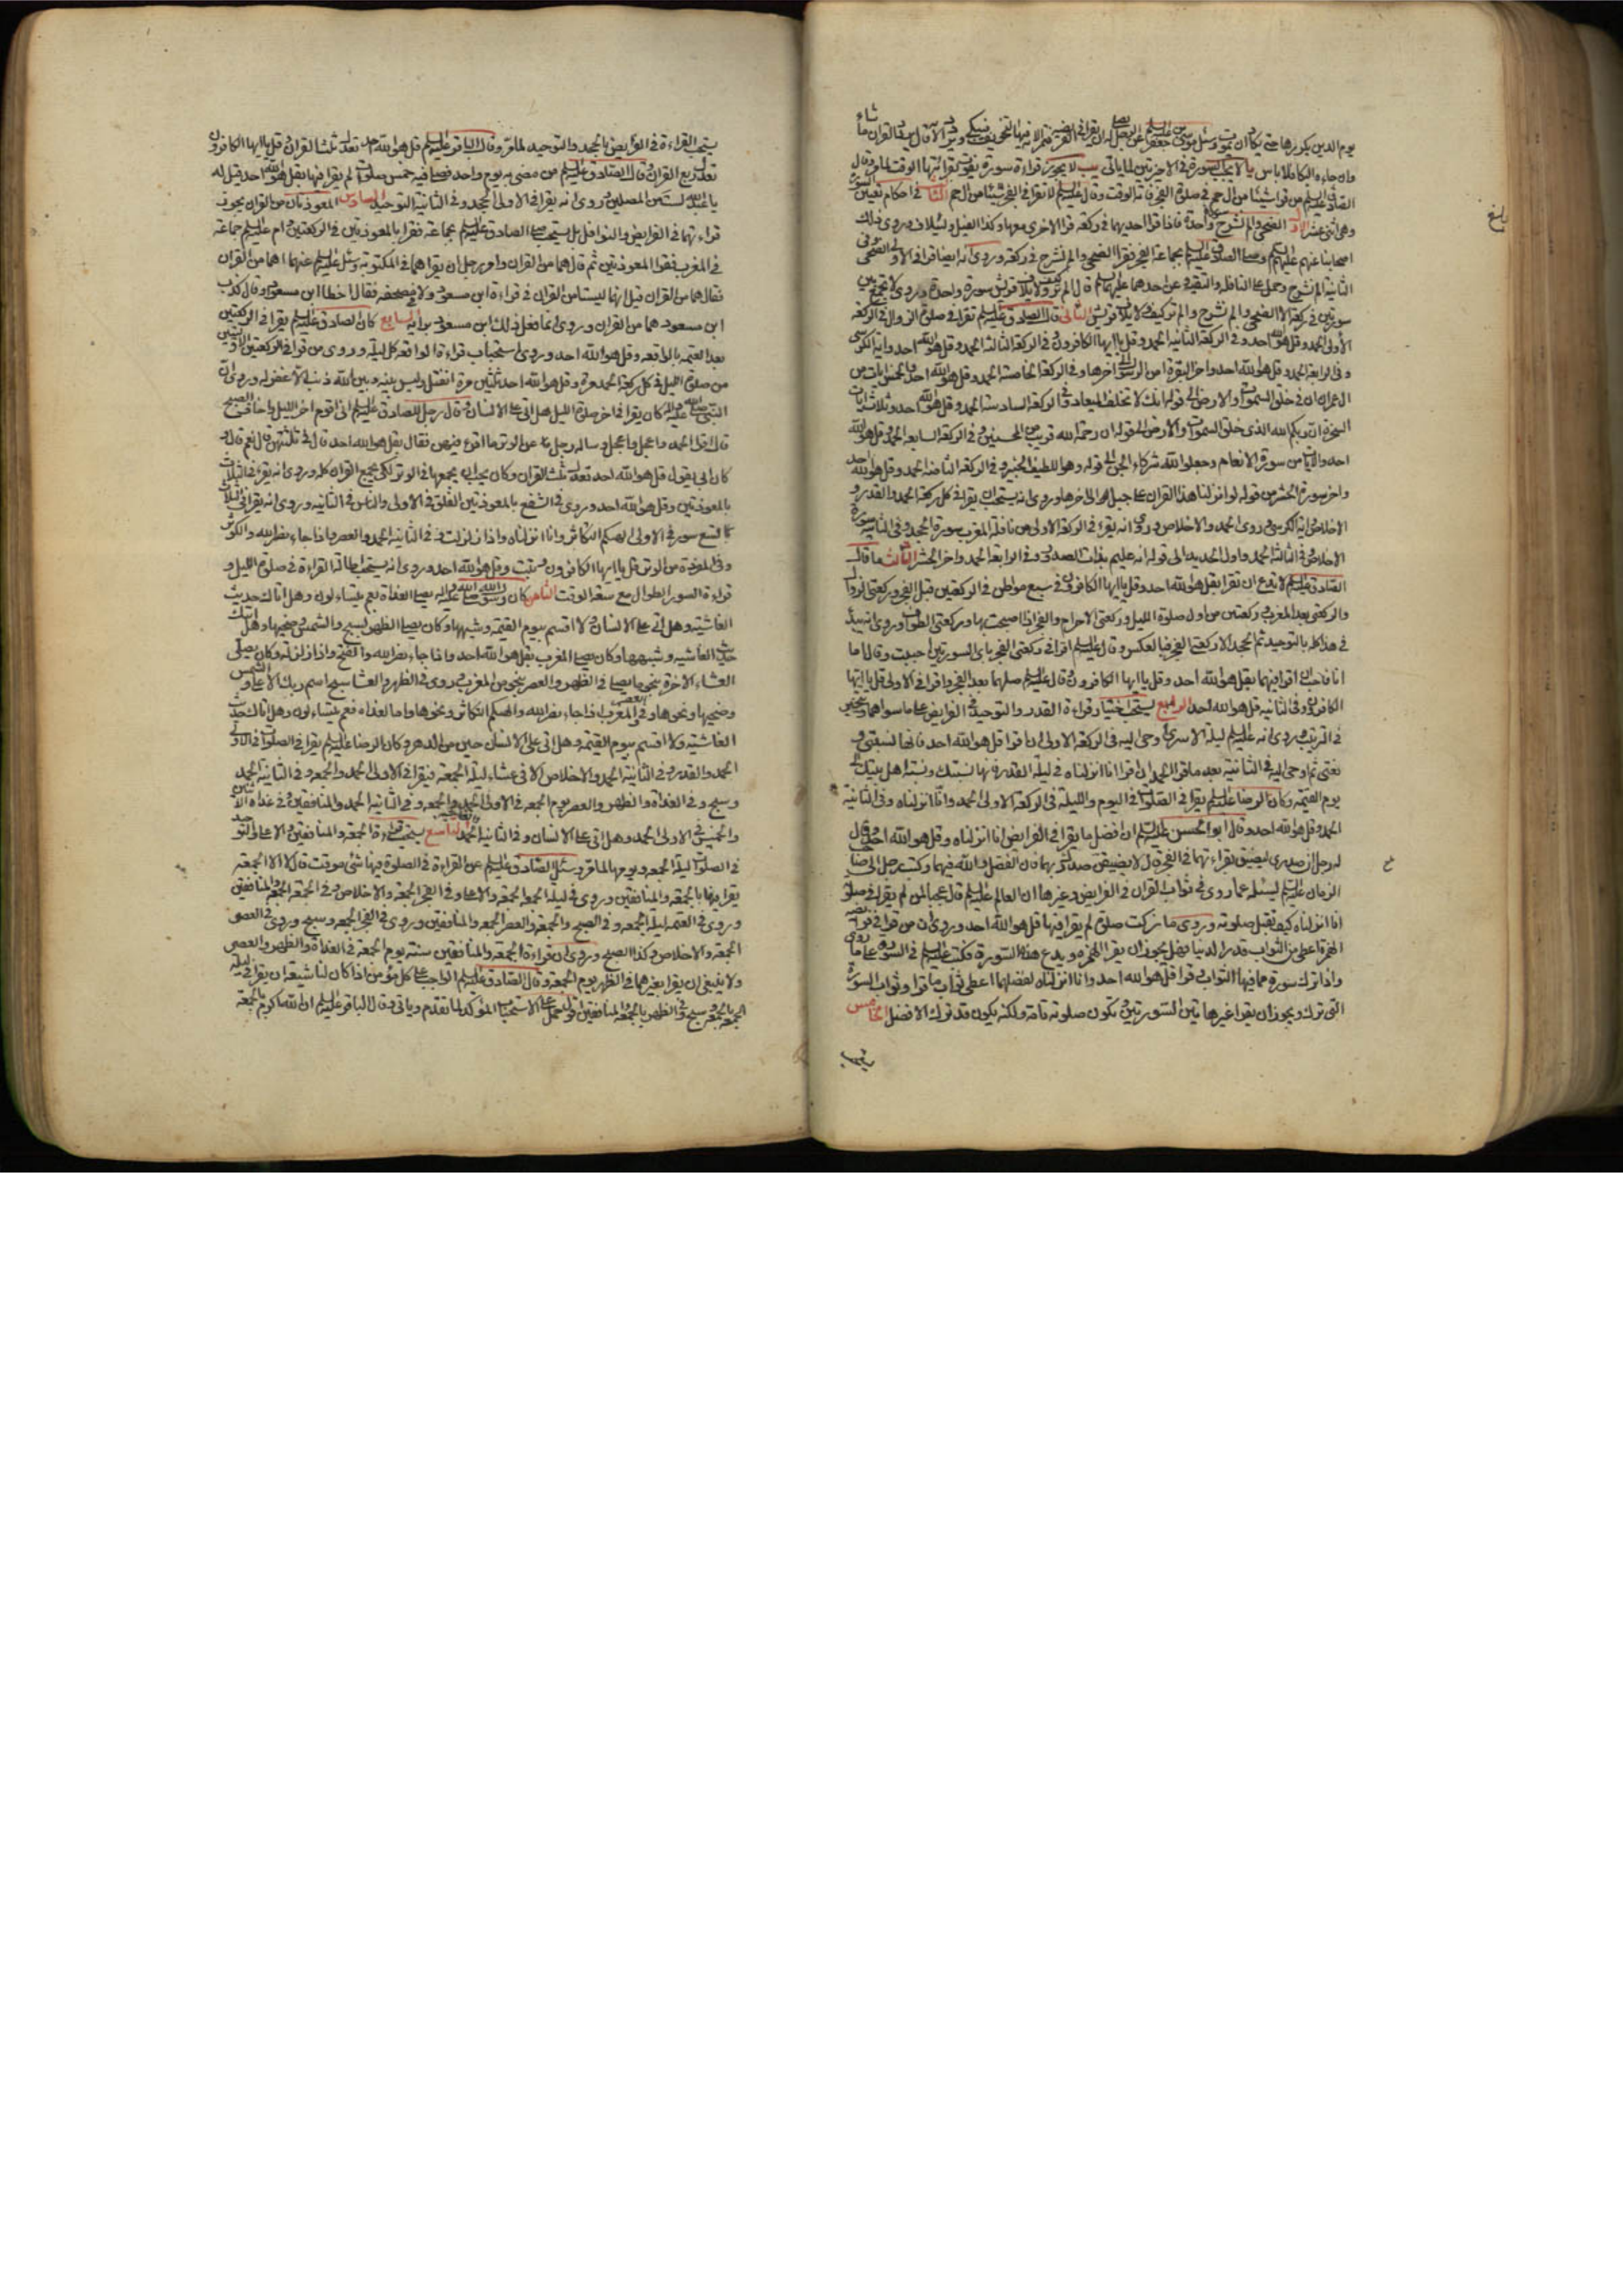 يوم الدين يكررها حتى يكاد ان يموت وسئل موسى بن جعفر عليه السلام عن الرجل يصلى له ان يقرا فى الفريضة فتمر الاية فيها التخويف فيبكى ويردد الاية قال يردد القران ما شاء
وان جاءه البكاء فلا باس يا لا يجب السورة فى الاخيرتين لما ياتى يب لا يجوز قراءة سورة يفوت بقرائتها الوقت لما مر وقال
الصادق عليه السلام من قرا شيئا من ال حم فى صلوة الفجر فاته الوقت وقال عليه السلام لا تقرا فى الفجر شيئا من ال حم الثانى فى احكام تعيين السورة
وهى اثنى عشر الاول الضحى والم نشرح سورة واحدة فاذا قرا احديهما فى ركعة قرا الاخرى معها وكذا الفيل ولئيلاف وروى ذلك
اصحابنا عنهم عليهم السلم وصلى الصادق عليه السلم بجماعة الفجر فقرا الضحى والم نشرح فى ركعة وروى انه ايضا قرا فى الاولى الضحى وفى
الثانية الم نشرح وحمل على النافلة والتقية وعن احدهما عليهما السلم قال الم تر كيف ولايلاف قريش سورة واحدة وروى لا تجمع بين
سورتين فى ركعة الا الضحى والم نشرح والم تر كيف ولايلاف قريش الثانى قال الصادق عليه السلم تقرا فى صلوة الزوال فى الركعة
الاولى الحمد وقل هو الله احد وفى الركعة الثانية الحمد وقل يا ايها الكافرون وفى الركعة الثالثة الحمد وقل هو الله احد واية الكرسى
وفى الرابعة الحمد وقل هو الله احد واخر البقرة امن الرسول الى اخرها وفى الركعة الخامسة الحمد وقل هو الله احد والخمس ايات من
ال عمران ان فى خلق السموات والارض الى قوله انك لا تخلف الميعاد وفى الركعة السادسة الحمد وقل هو الله احد وثلاث ايات
السخرة ان ربكم الله الذى خلق السموات والارض الى قوله ان رحمة الله قريب من المحسنين وفى الركعة السابعة الحمد وقل هو الله
احد والايات من سورة الانعام وجعلوا لله شركاء الجن الى قوله وهو اللطيف الخبير وفى الركعة الثامنة الحمد وقل هو الله احد
واخر سورة الحشر من قوله لو انزلنا هذا القران على جبل الى اخرها وروى انه يستحب ان يقرا فى كل ركعة الحمد والقدر و
الاخلاص واية الكرسى وروى الحمد والاخلاص وروى انه يقرء فى الركعة الاولى من نافلة المغرب سورة الجحد وفى الثانية سورة
الاخلاص وفى الثالثة الحمد واول الحديد الى قوله انه عليم بذات الصدور وفى الرابعة الحمد واخر الحشر الثالث ما قال
الصادق عليه السلم لا تدع ان تقرا بقل هو الله احد وقل يا ايها الكافرون فى سبع مواطن فى الركعتين قبل الفجر وركعتى الزوال
والركعتين بعد المغرب وركعتين من اول صلوة الليل وركعتى الاحرام والفجر اذا اصبحت بها وركعتى الطواف وروى انه يبدأ
فى هذا كله بالتوحيد ثم الجحد الا ركعتى الفجر فبالعكس وقال عليه السلم اقرا فى ركعتى الفجر باى السورتين احببت وقال اما
انا فاحب ان اقرا فيهما بقل هو الله احد وقل يا ايها الكافرون وقال عليه السلم صلهما بعد الفجر واقرا فى الاولى قل يا ايها
الكافرون وفى الثانية قل هو الله احد الرابع يستحب اختيار قراءة القدر والتوحيد فى الفرايض على ما سواهما
فى الترتيب وروى انه عليه السلم ليلة الاسرى اوحى اليه فى الركعة الاولى ان اقرا قل هو الله احد فانها نسبتى و
نعتى ثم اوحى اليه فى الثانية بعد ما قرا الحمد ان اقرا انا انزلناه فى ليلة القدر فانها نسبتك ونسبة اهل بيتك الى
يوم القيمة وكان الرضا عليه السلم يقرا فى الصلوات فى اليوم والليلة فى الركعة الاولى الحمد وانا انزلناه وفى الثانية
الحمد وقل هو الله احد وقال ابو الحسن عليه السلم ان افضل ما يقرا فى الفرايض انا انزلناه وقل هو الله احد وقال
له رجل ان صدرى ليضيق بقراءتهما فى الفجر قال لا يضيقن صدرك بهما فان الفضل والله فيهما وكتب رجل الى صاحب
الزمان عليه السلم ليسئله عما روى فى ثواب القران فى الفرايض وغيرها ان العالم عليه السلم قال عجبا لمن لم يقرا فى صلوته
انا انزلناه كيف تقبل صلوته وروى ما زكت صلوة لم يقرا فيها قل هو الله احد وروى ان من قرا فى فرائضه
الهمزة اعطى من الثواب قدر الدنيا فهل يجوز ان يقرا الهمزة ويدع هذه السورة فكتب عليه السلم فى السور على ما روى
واذا ترك سورة مما فيها الثواب وقرا قل هو الله احد وانا انزلناه لفضلهما اعطى ثواب ما قرا وثواب السورة
التى ترك ويجوز ان يقرا غير هاتين السورتين وتكون صلوته تامة ولكنه يكون قد ترك الافضل الخامس
يستحب
يستحب القراءة فى الفرايض بالجحد والتوحيد لما مر وقال الباقر عليه السلم قل هو الله احد تعدل ثلث القران وقل يا ايها الكافرون
تعدل ربع القران وقال الصادق عليه السلم من مضى به يوم واحد فصلى فيه خمس صلوات لم يقرا فيها بقل هو الله احد قيل له
يا عبد الله لست من المصلين وروى انه يقرا فى الاولى الجحد وفى الثانية التوحيد السادس المعوذتان من القران يجوز
قراءتهما فى الفرايض والنوافل بل يستحب صلى الصادق عليه السلم بجماعة فقرا بالمعوذتين فى الركعتين وام عليه السلم جماعة
فى المغرب فقرا المعوذتين ثم قال هما من القران وامر رجل ان يقراهما فى المكتوبة وسئل عليه السلم عنهما اهما من القران
فقال هما من القران قيل انهما ليستا من القران فى قراءة ابن مسعود ولا فى مصحفه فقال اخطا ابن مسعود او قال كذب
ابن مسعود هما من القران وروى انما فعل ذلك ابن مسعود برايه السابع كان الصادق عليه السلم يقرا فى الركعتين
بعد العتمة بالواقعة وقل هو الله احد وروى استحباب قراءة الواقعة كل ليلة وروى من قرا فى الركعتين الاوليين
من صلوة الليل فى كل ركعة الحمد مرة وقل هو الله احد ثلثين مرة انفتل وليس بينه وبين الله ذنب الا غفر له وروى ان
النبى صلى الله عليه واله كان يقرا فى اخر صلوة الليل هل اتى على الانسان وقال رجل للصادق عليه السلم انى اقوم اخر الليل واخاف الصبح
قال اقرا الحمد واعجل واعجل وساله رجل عن الوتر ما اقرء فيهن فقال بقل هو الله احد قال فى ثلثتهن قال نعم وقال
كان ابى يقول قل هو الله احد تعدل ثلث القران وكان يحب ان يجمعها فى الوتر لكى يجمع القران كله وروى انه يقرء فى الثلاث
بالمعوذتين وقل هو الله احد وروى فى الشفع بالمعوذتين الفلق فى الاولى والناس فى الثانية وروى انه يقرا فى الثلاث
بالتسع سور فى الاولى الهيكم التكاثر وانا انزلناه واذا زلزلت وفى الثانية الحمد والعصر واذا جاء نصر الله والكوثر
وفى المفردة من الوتر قل يا ايها الكافرون وتبت وقل هو الله احد وروى انه يستحب اطالة القراءة فى صلوة الليل و
قراءة السور الطوال مع سعة الوقت الثامن كان رسول الله صلى الله عليه واله يصلى الغداة بعم يتساءلون وهل اتاك حديث
الغاشية وهل اتى على الانسان ولا اقسم بيوم القيمة وشبهها وكان يصلى الظهر بسبح والشمس وضحيها وهل اتيك
حديث الغاشية وشبهها وكان يصلى المغرب بقل هو الله احد واذا جاء نصر الله والفتح واذا زلزلت وكان يصلى
العشاء الاخرة بنحو ما يصلى فى الظهر والعصر بنحو من المغرب وروى فى الظهر والعشا سبح اسم ربك الاعلى والشمس
وضحيها ونحوها وفى العصر والمغرب اذا جاء نصر الله والهيكم التكاثر ونحوها واما الغداة فعم يتساءلون وهل اتاك حديث
الغاشية ولا اقسم بيوم القيمة وهل اتى على الانسان حين من الدهر وكان الرضا عليه السلم يقرا فى الصلوات فى الاولى
الحمد والقدر وفى الثانية الحمد والاخلاص الا فى عشاء ليلة الجمعة فيقرا فى الاولى الحمد والجمعة وفى الثانية الحمد
وسبح وفى الغداة والظهر والعصر يوم الجمعة فى الاولى الحمد والجمعة وفى الثانية الحمد والمنافقين وفى غداة الاثنين
والخميس فى الاولى الحمد وهل اتى على الانسان وفى الثانية الحمد التاسع يستحب قراءة الجمعة والمنافقين والاعلى والتوحيد
فى الصلوات ليلة الجمعة ويومها لما مر وسئل الصادق عليه السلم عن القراءة فى الصلوة فيها شئ موقت قال لا الا الجمعة
يقرا فيها بالجمعة والمنافقين وروى فى ليلة الجمعة الجمعة والاعلى وفى الفجر الجمعة والاخلاص وفى الجمعة الجمعة والمنافقين
وروى فى العتمة ليلة الجمعة وفى الصبح والجمعة والعصر الجمعة والمنافقين وروى فى الفجر الجمعة وسبح وروى فى العصر
الجمعة والاخلاص وكذا الصبح وروى ان قراءة الجمعة والمنافقين سنة يوم الجمعة فى الغداة والظهر والعصر
ولا ينبغى ان يقرا بغيرهما فى الظهر يوم الجمعة وقال الصادق عليه السلم الواجب على كل مؤمن اذا كان لنا شيعة ان يقرا فى ليلة
الجمعة بالجمعة وسبح وفى الظهر بالجمعة والمنافقين اقول حمل على الاستحباب المؤكد لما تقدم وياتى وقال الباقر عليه السلم ان الله اكرم بالجمعة